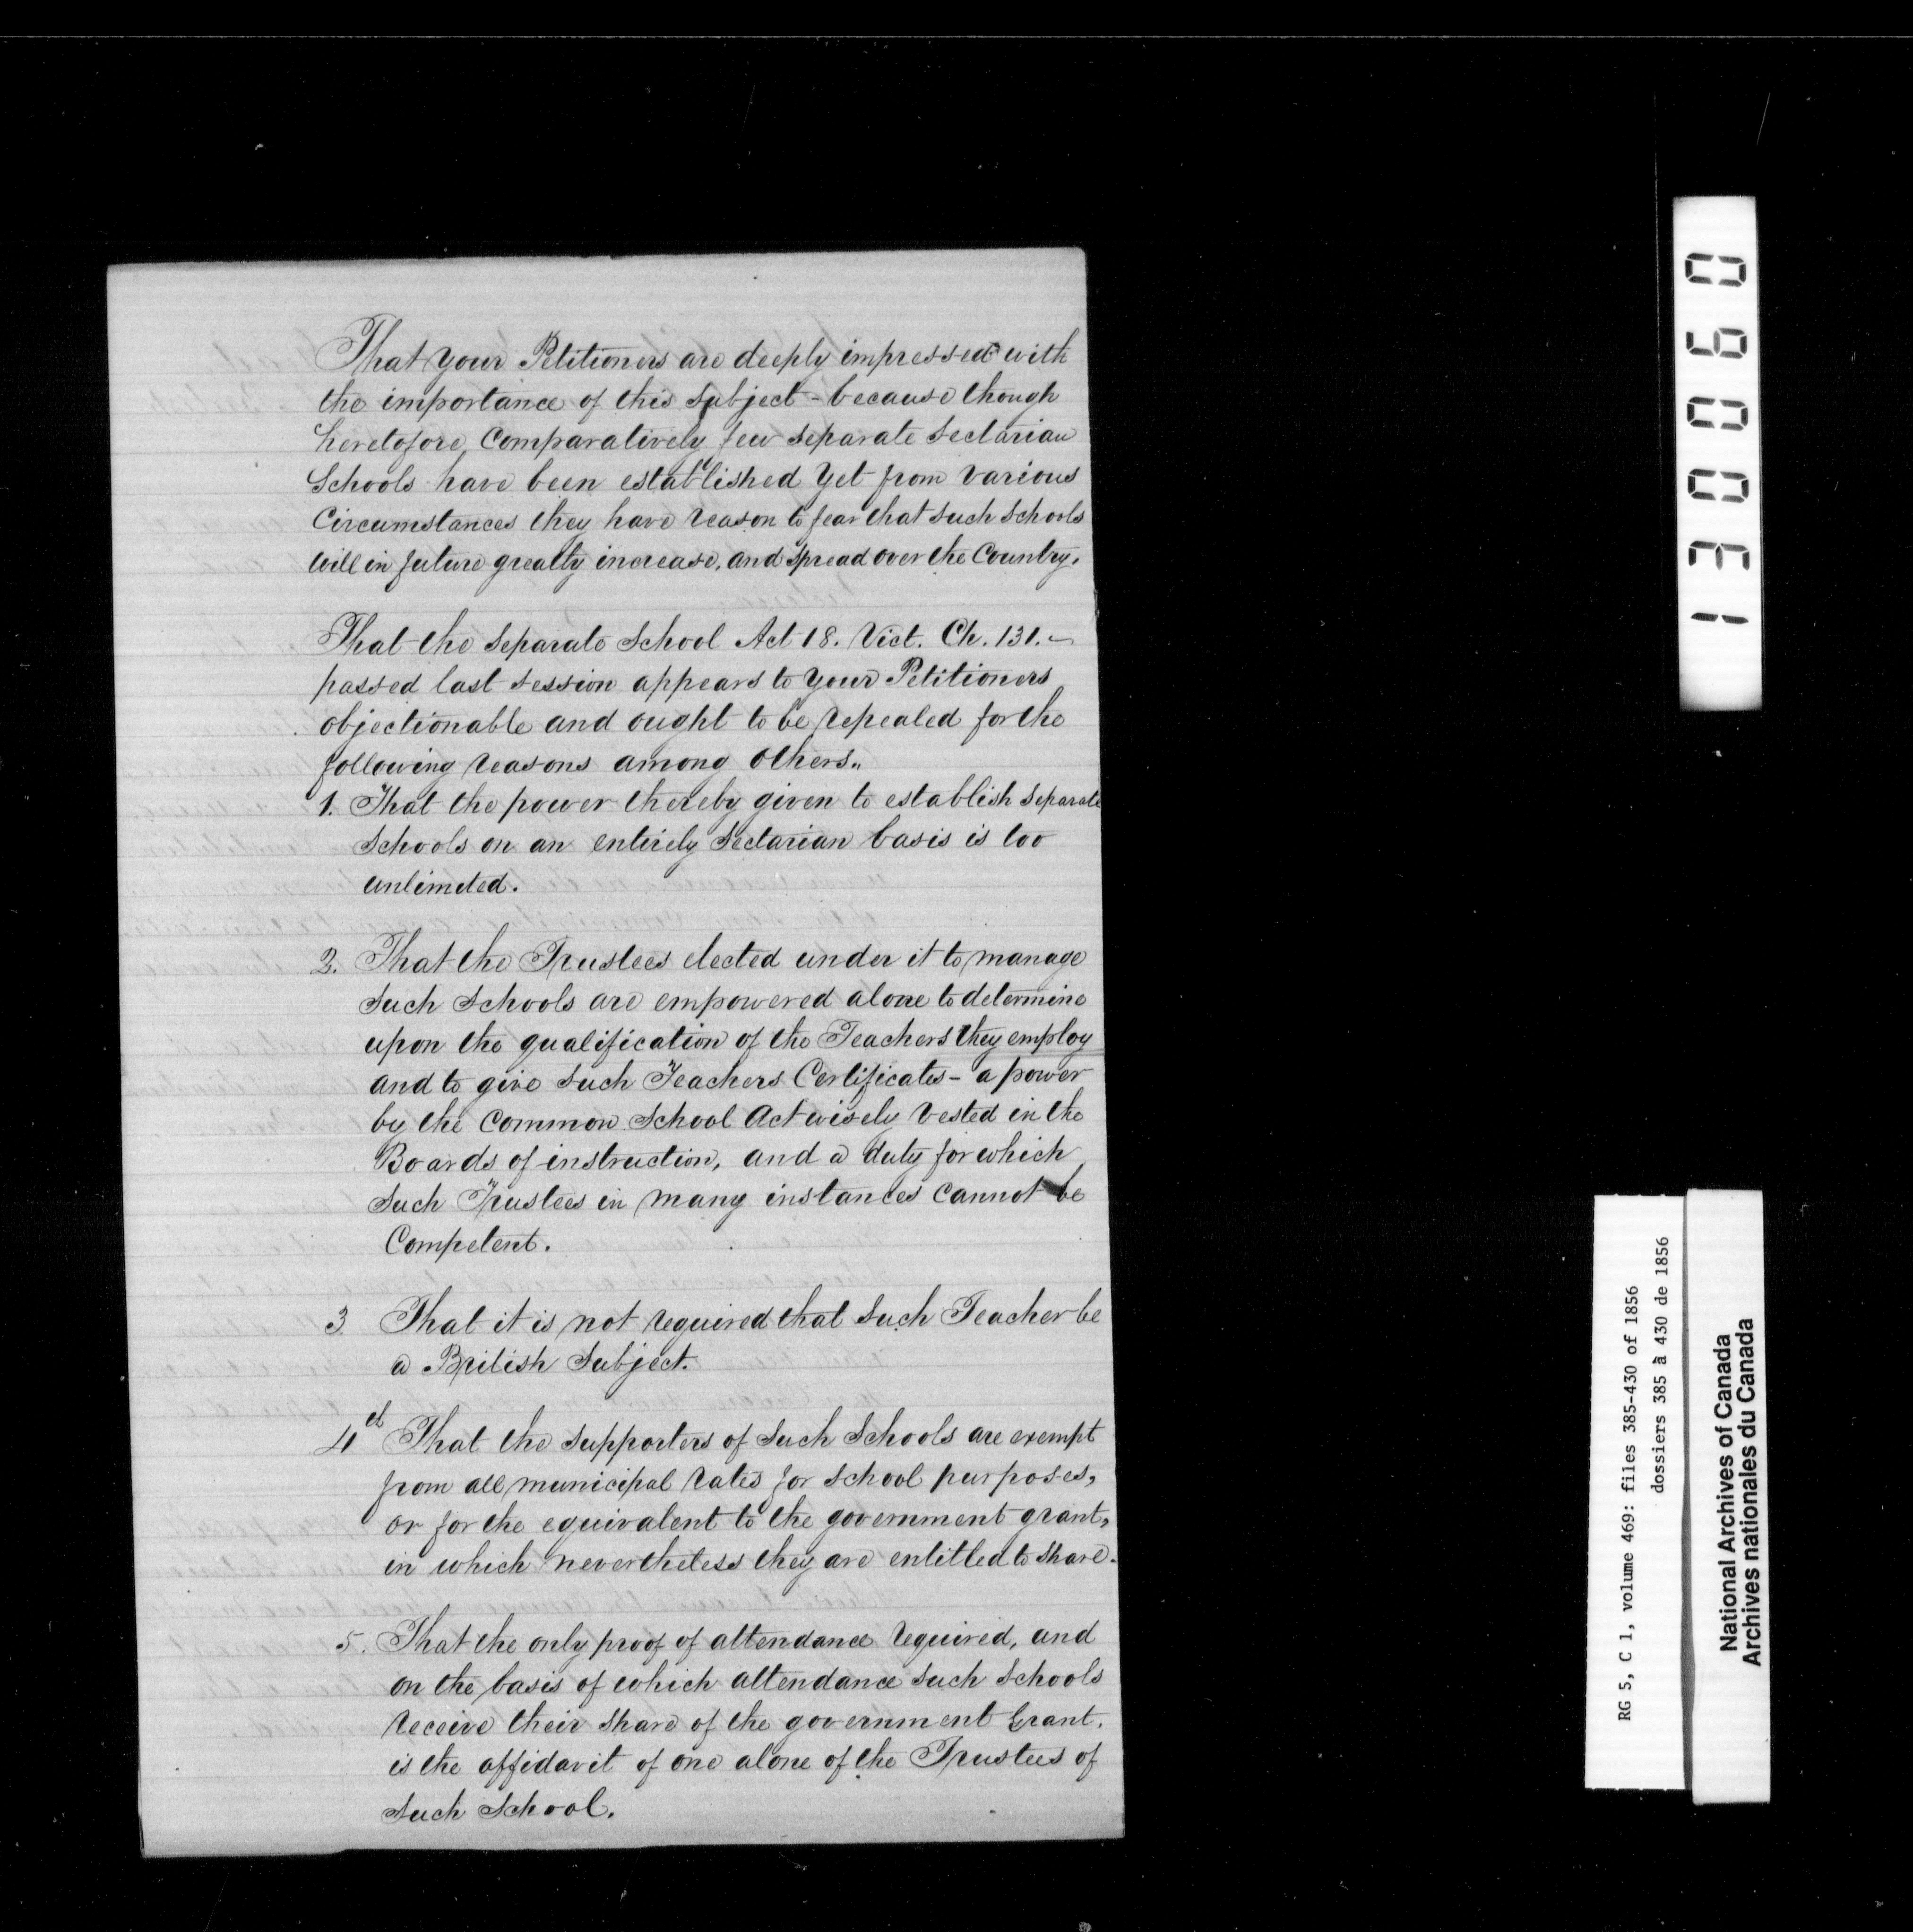 That your Petitioners are deeply impressed with
the importance of this subject - because though
heretofore comparatively few separate sectarian
Schools have been established yet from various
Circumstances they have reason to fear that such schools
will in future greatly increase, and spread over the Country.
That the Separate School Act 18. Vict. Ch. 131. -
passed last session appears to your Petitioners
objectionable and ought to be repealed for the
following reasons among others..
1. That the power thereby given to establish separate
Schools on an entirely Sectarian basis is too
unlimeted.
2. That the Trustees elected under it to manage
such Schools are empowered alone to determine
upon the qualification of the Teachers they employ
and to give such Teachers Certificates - a power
by the Common School Act wisely vested in the
Boards of instruction, and a duty for which
such Trustees in many instances cannot be
Competent.
3. That it is not required that such Teacher be
a British Subject.
4 That the supporters of such Schools are exempt
from all municipal rates for school purposes,
or for the equivalent to the government grant,
in which nevertheless they are entitled to share.
5. That the only proof of attendance required, and
on the basis of which attendance such Schools
receive their share of the government Grant.
is the affidavit of one alone of the Trustees of
such School.
130060
RG 5, C 1, volume 469: files 385-430 of 1856
dossiers 385 à 430 de 1856
National Archives of Canada
Archives nationales du Canada